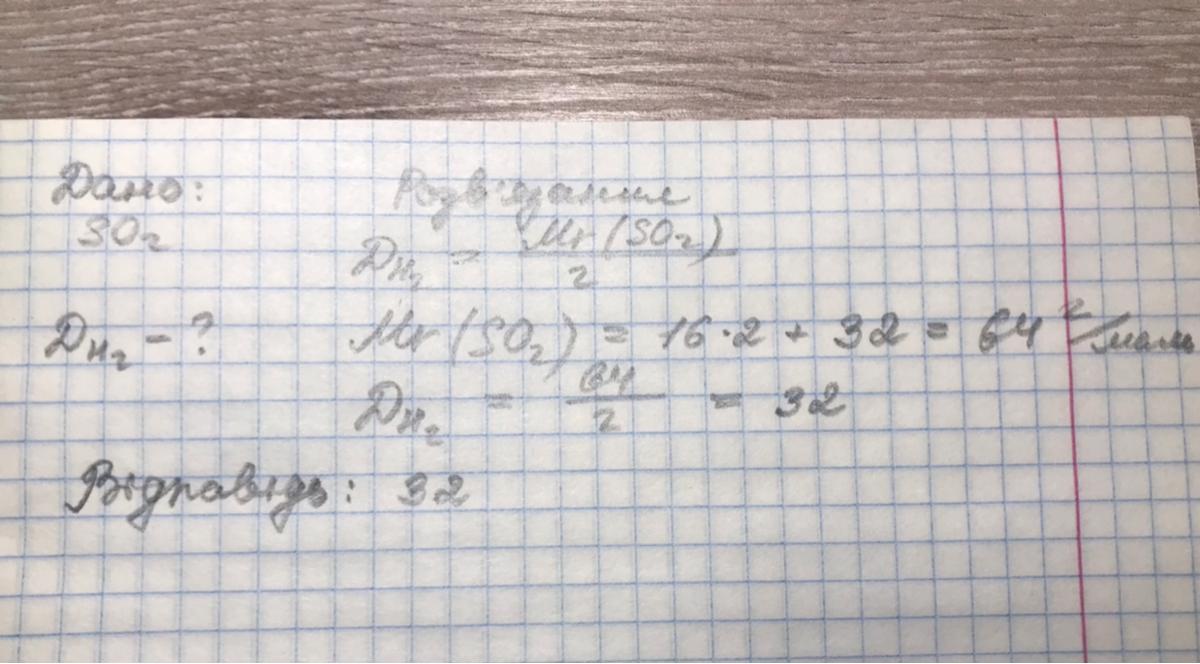 Дано: Розв'язання
SO₂ D_H₂ = Mr(SO₂)/2
D_H₂ - ? Mr(SO₂) = 16·2 + 32 = 64 г/моль
D_H₂ = 64/2 = 32
Відповідь: 32